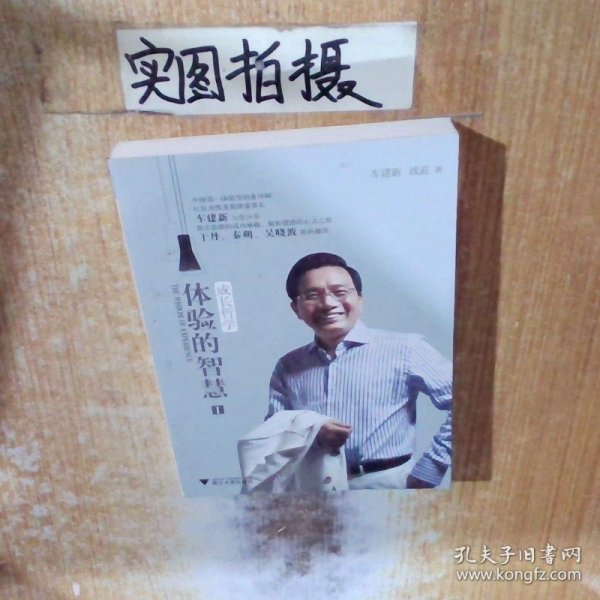 实图拍摄
车建新 钱莊 著
车建新
于丹、秦朔、吴晓波
成长哲学
体验的智慧
1
THE WISDOM OF EXPERIENCE
孔夫子旧书网
www.kongfz.com